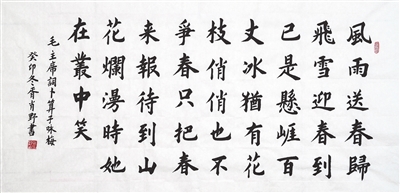 風雨送春歸
飛雪迎春到
已是懸崖百
丈冰猶有花
枝俏俏也不
爭春只把春
来報待到山
花爛漫時她
在叢中笑
毛主席詞卜算子咏梅
癸卯冬肖野書